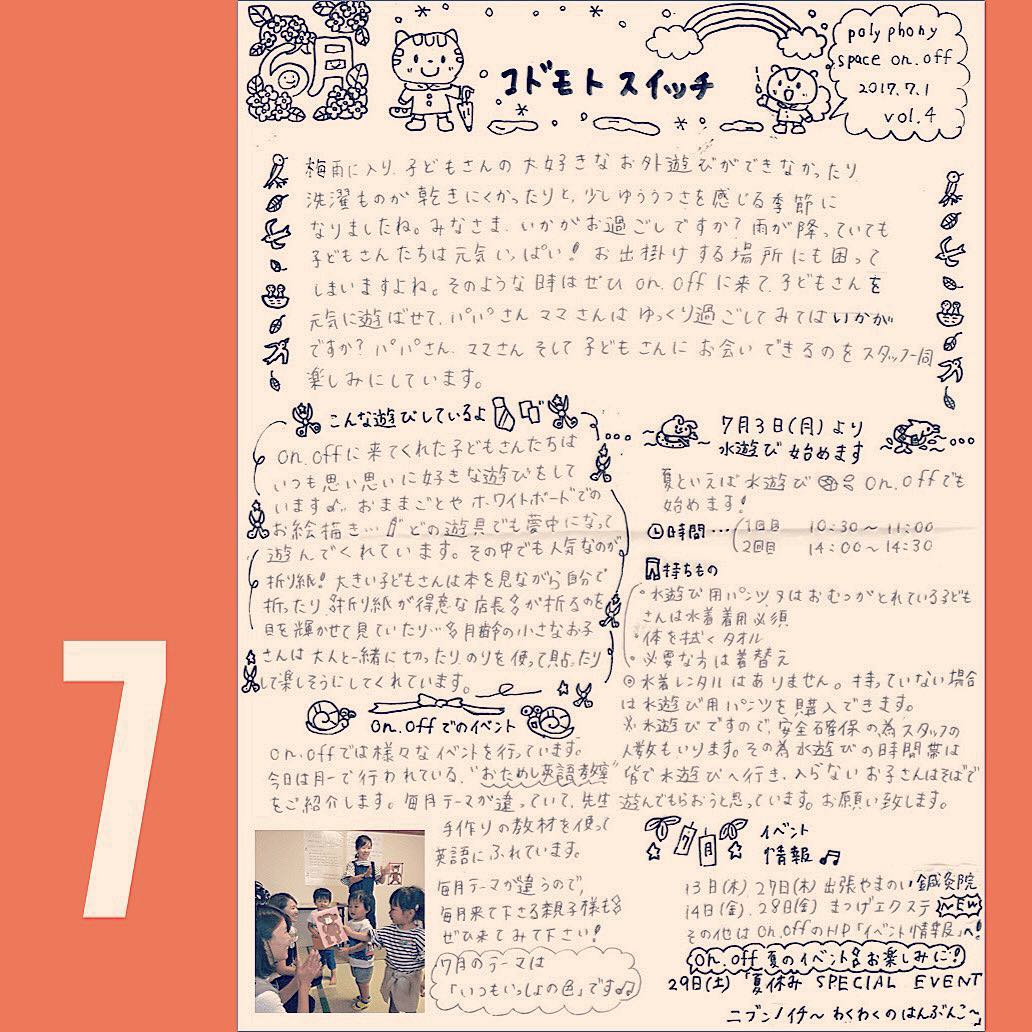 7
6月
コドモト スイッチ
polyphony
space on.off
2017.7.1
vol.4
梅雨に入り、子どもさんの大好きなお外遊びができなかったり
洗濯ものが乾きにくかったりと、少しゆううつさを感じる季節に
なりましたね。みなさま、いかがお過ごしですか？雨が降っていても
子どもさんたちは元気いっぱい！お出掛けする場所にも困って
しまいますよね。そのような時はぜひ on.off に来て、子どもさんを
元気に遊ばせて、パパさん ママさんは ゆっくり過ごしてみてはいかが
ですか？パパさん、ママさん そして 子どもさんに お会いできるのをスタッフ一同
楽しみにしています。
こんな遊びしているよ
on.offに来てくれた子どもさんたちは
いつも思い思いに好きな遊びをして
います♪ おままごとや ホワイトボードでの
お絵描き… どの遊具でも夢中になって
遊んでくれています。その中でも人気なのが
折り紙！大きい子どもさんは本を見ながら自分で
折ったり、折り紙が得意な店長が折るのを
目を輝かせて見ていたり…月齢の小さなお子
さんは大人と一緒に切ったり、のりを使って貼ったり
して楽しそうにしてくれています。
on.offでのイベント
on.offでは様々なイベントを行っています。
今日は月一で行われている、"おためし英語教室"
をご紹介します。毎月テーマが違っていて、先生
手作りの教材を使って
英語にふれています。
毎月テーマが違うので、
毎月来て下さる親子様も
ぜひ来てみて下さい！
7月のテーマは
「いつもいっしょの色」です♫
7月3日(月)より
水遊び始めます
夏といえば水遊び on.offでも
始めます！
時間…
1回目 10:30〜11:00
2回目 14:00〜14:30
持ちもの
・水遊び用パンツ、又はおむつがとれている子ども
さんは水着着用必須
・体を拭くタオル
・必要な方は着替え
◎水着レンタルはありません。持っていない場合
は水遊び用パンツを購入できます。
※水遊びですので、安全確保の為スタッフの
人数もいります。その為水遊びの時間帯は
皆で水遊びへ行き、入らないお子さんはそばで
遊んでもらおうと思っています。お願い致します。
7月
イベント
情報♫
13日(木)、27日(木) 出張やまのい鍼灸院
14日(金)、28日(金) まつげエクステ NEW
その他は on.offのHP「イベント情報」へ！
on.off 夏のイベントもお楽しみに！
29日(土)「夏休み SPECIAL EVENT
ニブンノイチ〜わくわくのはんぶんこ〜」